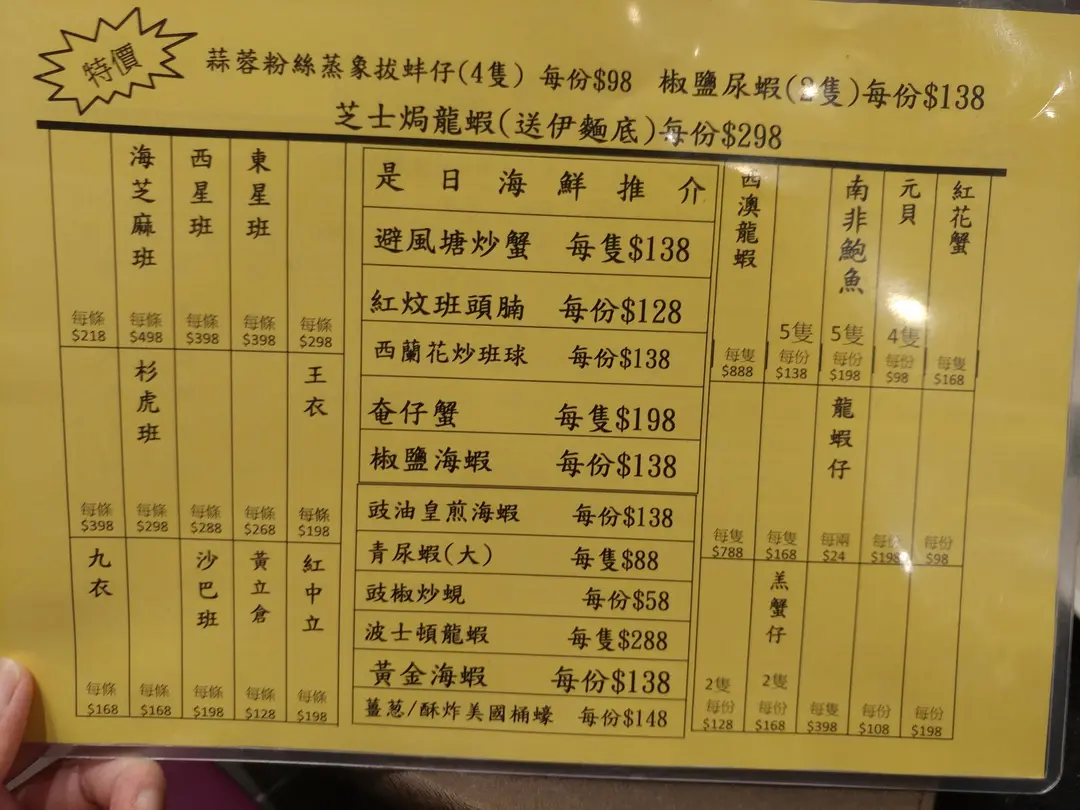 特價
蒜蓉粉絲蒸象拔蚌仔(4隻) 每份$98 椒鹽尿蝦(2隻)每份$138
芝士焗龍蝦(送伊麵底)每份$298
每條 $218
海芝麻班 每條 $498
西星班 每條 $398
東星班 每條 $398
每條 $298
每條 $398
杉虎班 每條 $298
每條 $288
每條 $268
王衣 每條 $198
九衣 每條 $168
每條 $168
沙巴班 每條 $198
黃立倉 每條 $128
紅中立 每條 $198
是日海鮮推介
避風塘炒蟹 每隻$138
紅炆班頭腩 每份$128
西蘭花炒班球 每份$138
奄仔蟹 每隻$198
椒鹽海蝦 每份$138
豉油皇煎海蝦 每份$138
青尿蝦(大) 每隻$88
豉椒炒蜆 每份$58
波士頓龍蝦 每隻$288
黃金海蝦 每份$138
薑葱/酥炸美國桶蠔 每份$148
西澳龍蝦 每隻 $888
5隻 每份 $138
南非鮑魚 5隻 每份 $198
元貝 4隻 每份 $98
紅花蟹 每隻 $168
每隻 $788
每隻 $168
龍蝦仔 每兩 $24
每份 $198
每份 $98
2隻 每份 $128
羔蟹仔 2隻 每份 $168
每隻 $398
每份 $108
每份 $198